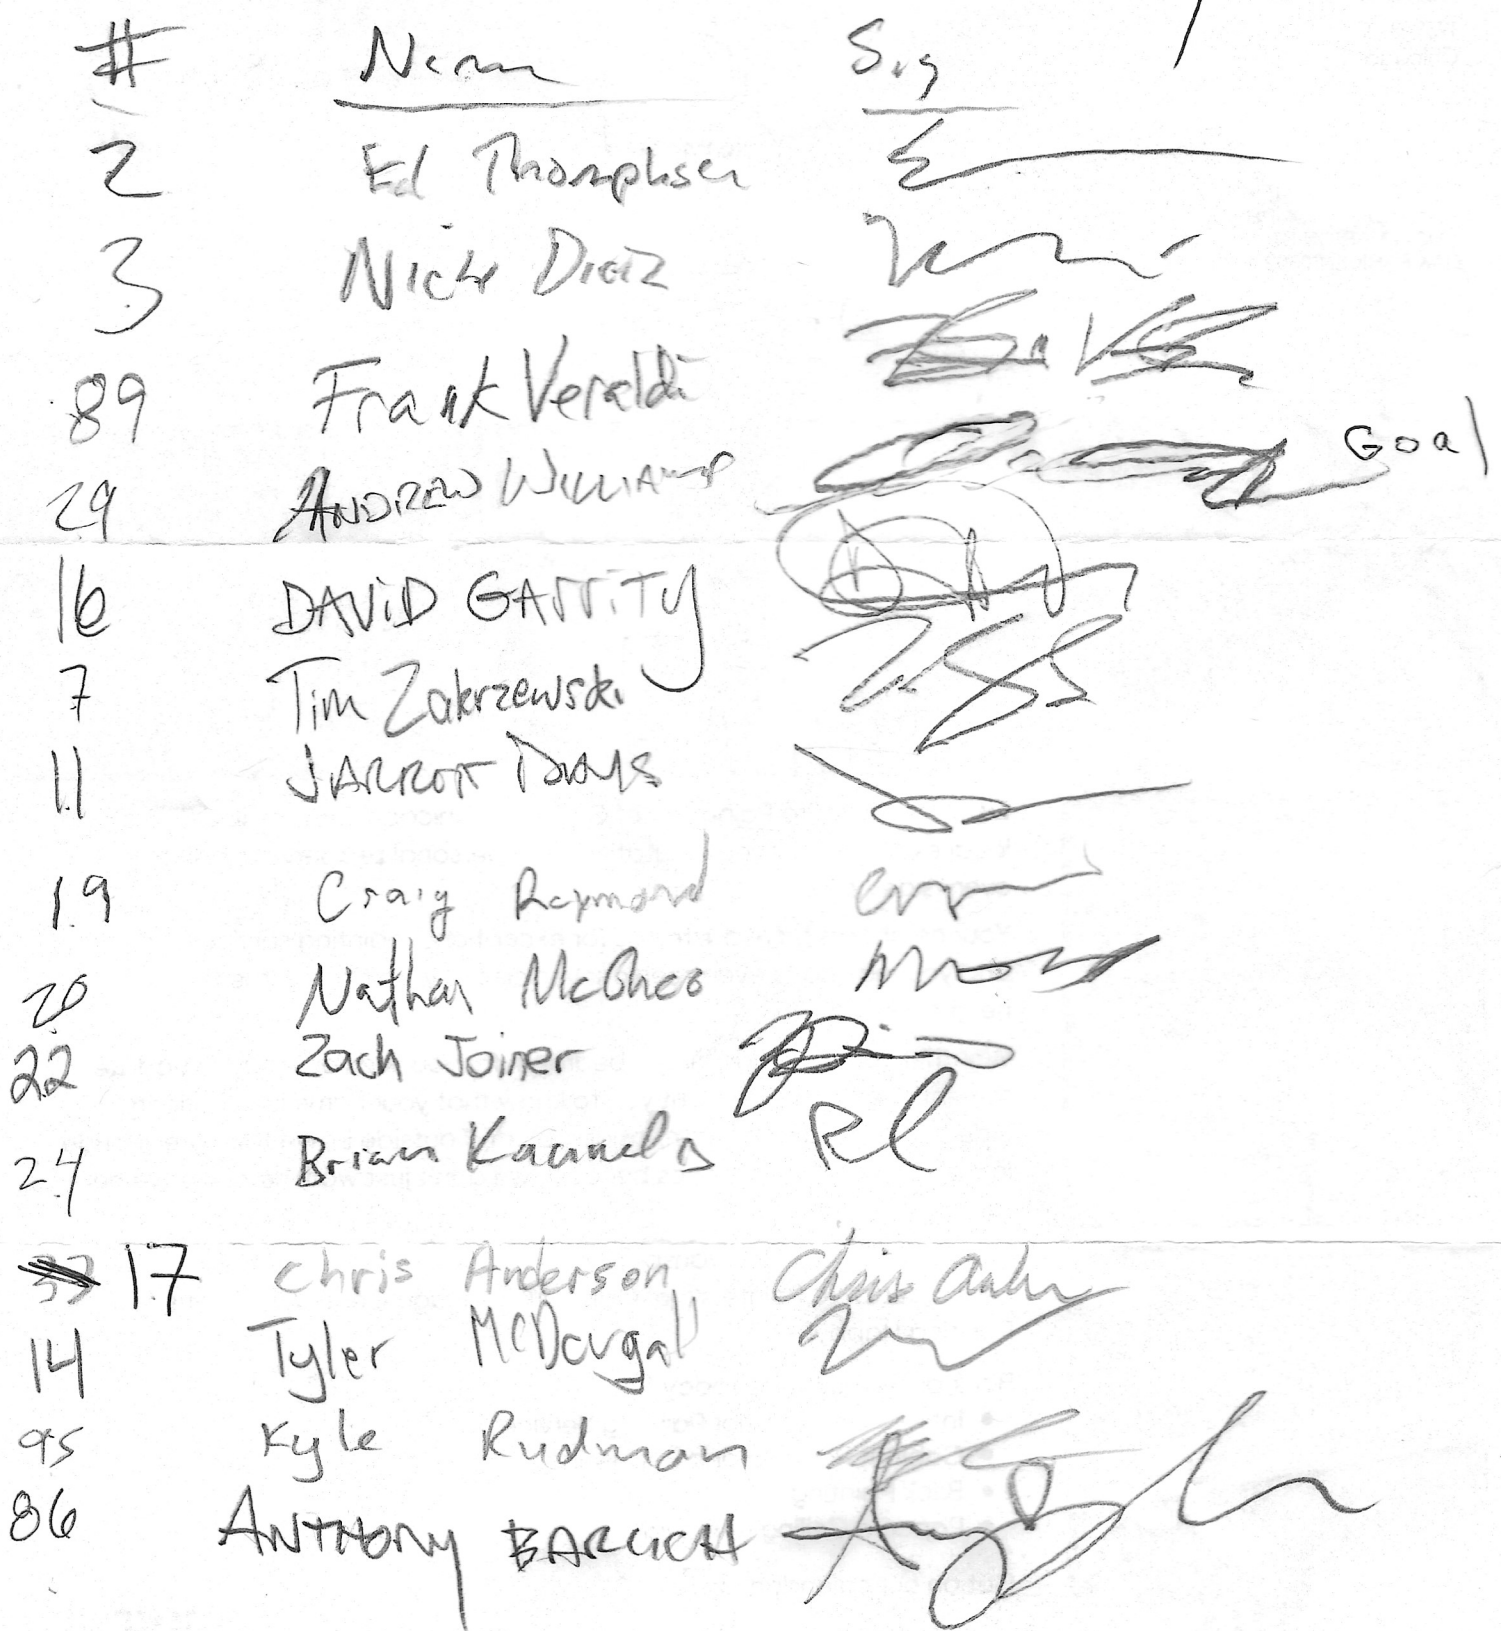 # Name Sig
2 Ed Thomphsen
3 Nick Dietz
89 Frank Veraldi
29 ANDREW WILLIAMS Goal
16 DAVID GARRITY
7 Tim Zakrzewski
11 JARROTT
19 Craig Raymond
20 Nathan McGhee
22 Zach Joiner
24 Brian
17 Chris Anderson Chris
14 Tyler McDougall
95 Kyle Rudman
86 ANTHONY